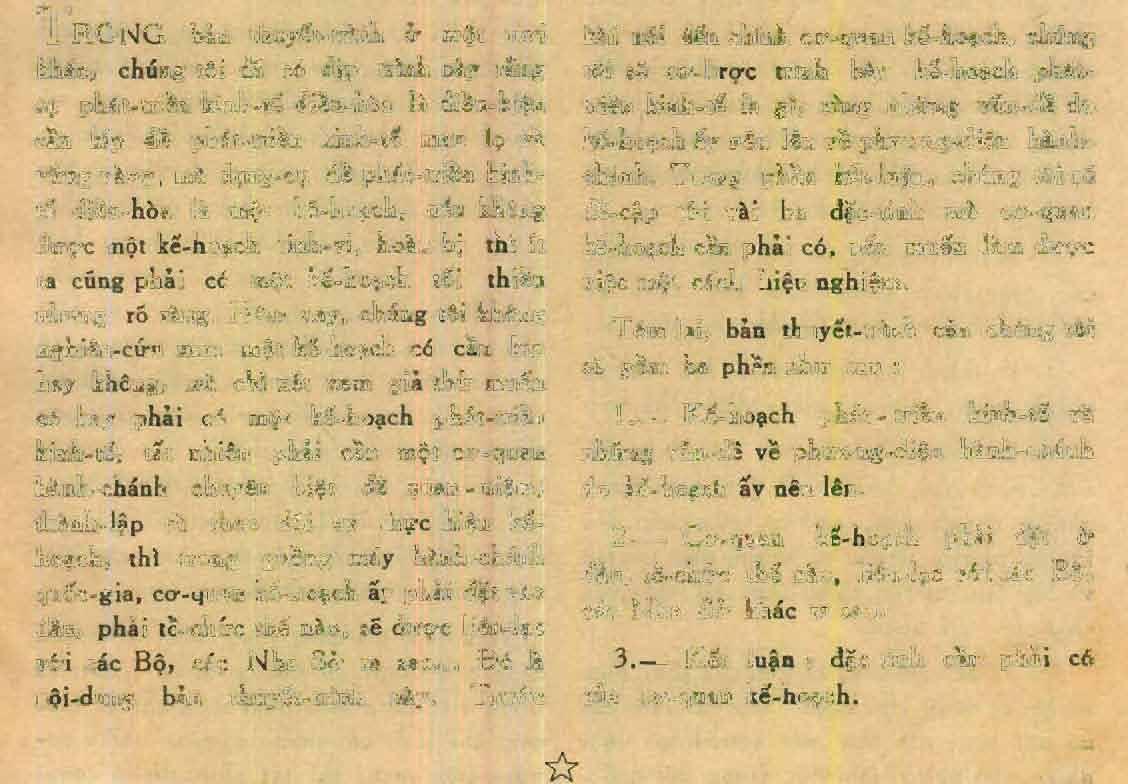 TRONG bản thuyết-trình ở một nơi
khác, chúng tôi đã có dịp trình bày rằng
sự phát-triển kinh-tế điều-hòa là điều-kiện
cần kíp để phát-triển kinh-tế mau lẹ và
vững vàng, mà dụng-cụ để phát-triển kinh-
tế điều-hòa là một kế-hoạch, nếu không
được một kế-hoạch tinh-vi, hoàn bị thì ít
ra cũng phải có một kế-hoạch tối thiểu
nhưng rõ ràng. Hôm nay, chúng tôi không
nghiên-cứu xem một kế-hoạch có cần kíp
hay không, mà chỉ xét xem giả thử muốn
có hay phải có một kế-hoạch phát-triển
kinh-tế, tất nhiên phải cần một cơ-quan
hành-chánh chuyên biệt để quan-niệm,
thành-lập và theo dõi sự thực hiện kế-
hoạch, thì trong guồng máy hành-chánh
quốc-gia, cơ-quan kế-hoạch ấy phải đặt vào
đâu, phải tổ-chức thế nào, sẽ được liên-lạc
với các Bộ, các Nha Sở ra sao... Đó là
nội-dung bản thuyết-trình này. Trước
khi nói đến chính cơ-quan kế-hoạch, chúng
tôi sẽ sơ-lược trình bày kế-hoạch phát-
triển kinh-tế là gì, cùng những vấn-đề do
kế-hoạch ấy nêu lên về phương-diện hành-
chánh. Trong phần kết-luận, chúng tôi sẽ
đề-cập tới vài ba đặc-tính mà cơ-quan
kế-hoạch cần phải có, nếu muốn làm được
việc một cách hiệu nghiệm.
Tóm lại, bản thuyết-trình của chúng tôi
sẽ gồm ba phần như sau :
1.— Kế-hoạch phát-triển kinh-tế và
những vấn-đề về phương-diện hành-chánh
do kế-hoạch ấy nêu lên.
2.— Cơ-quan kế-hoạch phải đặt ở
đâu, tổ-chức thế nào, liên-lạc với các Bộ,
các Nha Sở khác ra sao.
3.— Kết luận : đặc tính cần phải có
của cơ-quan kế-hoạch.